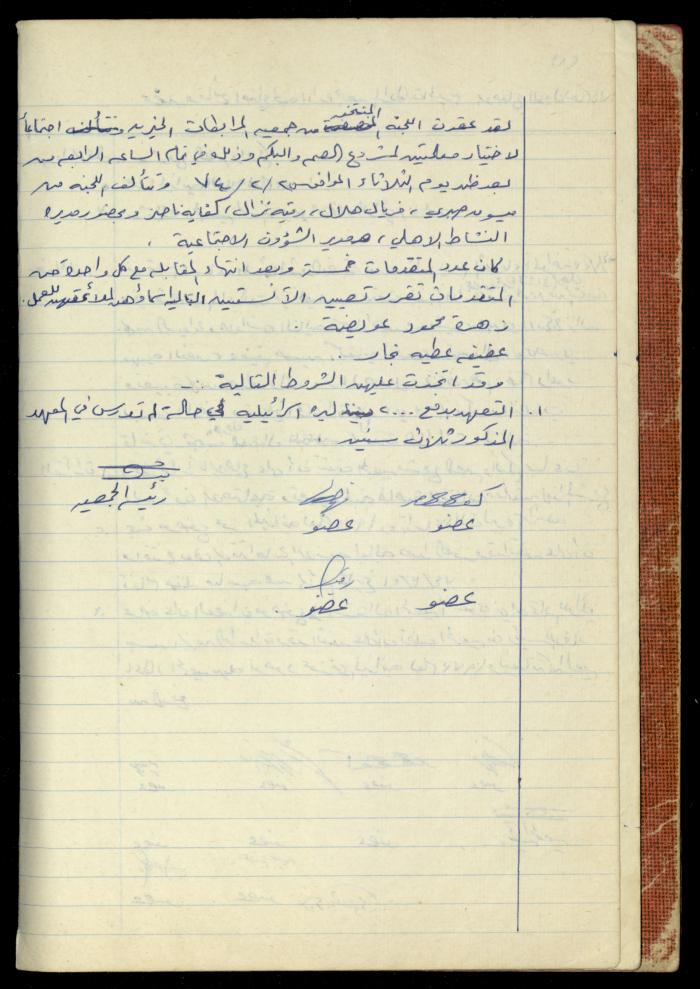 المنتخبة
لقد عقدت اللجنة من جمعية المرابطات الخيرية اجتماعاً
لاختيار معلمتين لمشروع الصم والبكم وذلك في تمام الساعه الرابعه من
بعد ظهر يوم الثلاثاء الموافق ٧٤/٢/٢٥ وتتألف اللجنة من
ميسون صبري، فريال هلال، رقية نزال، كفايه ناصر وبحضور مديره
النشاط الاهلي، ومدير الشؤون الاجتماعية .
كان عدد المتقدمات خمسة وبعد انتهاء المقابله مع كل واحدة من
المتقدمات تقرر تعيين الآنستين التاليه اسماؤهن للعمل.
زهرة محمود عويضة .
عفيفه عطيه نجار ..
وقد اتخذت عليهن الشروط التالية :-
١. التعهد بدفع ٢٠٠٠ ليره اسرائيليه في حالة لم تدرس في المعهد
المذكور ثلاث سنين .
رئيسة الجمعيه
عضو عضو
عضو عضو